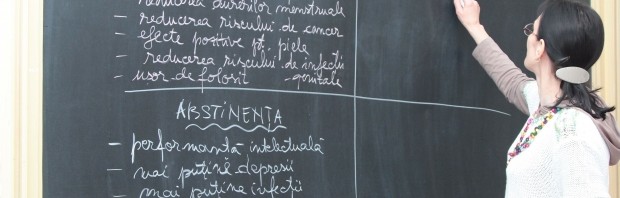 - reducerea durerilor menstruale
- reducerea riscului de cancer
- efecte pozitive pt. piele
- reducerea riscului de infecții genitale
- ușor de folosit
ABSTINENȚA
- performanță intelectuală
- mai puține depresii
- mai puține infecții